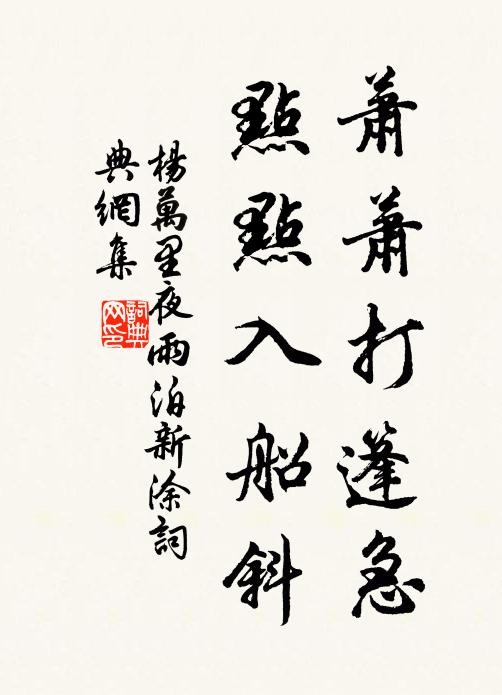 蕭蕭打篷急
點點入船斜
楊萬里夜雨泊新淦詞
典網集
詞典
网印